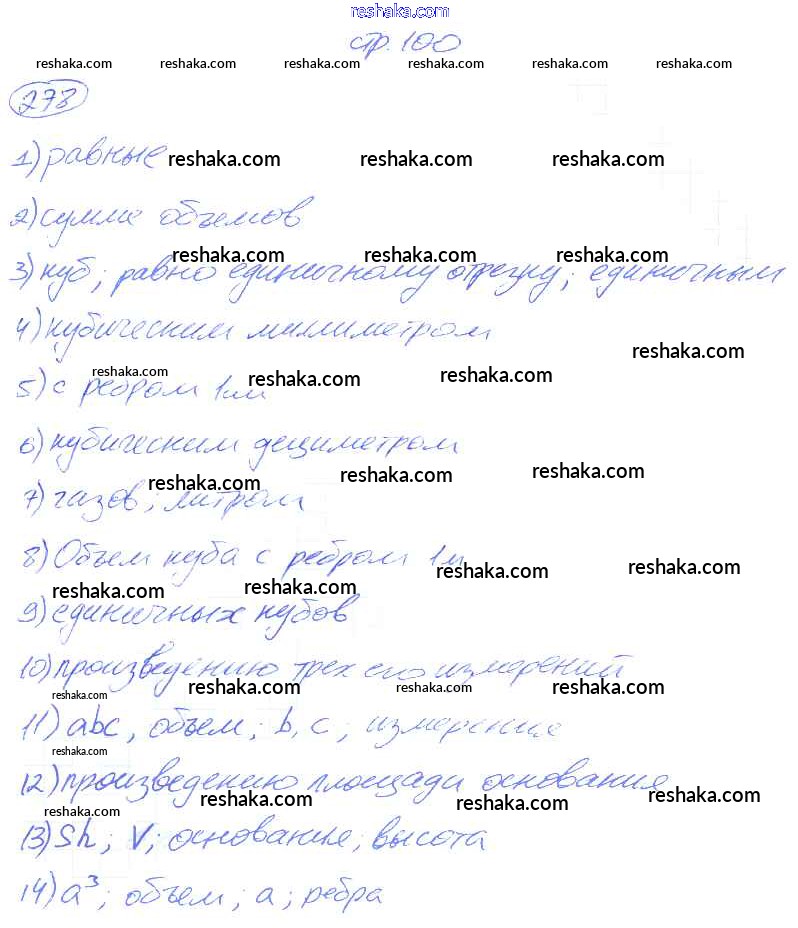 reshaka.com
стр. 100
reshaka.com reshaka.com reshaka.com reshaka.com reshaka.com reshaka.com
278
1) равные reshaka.com reshaka.com reshaka.com
2) сумме объемов
reshaka.com reshaka.com reshaka.com
3) куб; равно единичному отрезку; единичным
4) кубическим миллиметром
reshaka.com
reshaka.com reshaka.com reshaka.com
5) с ребром 1см
6) кубическим дециметром
reshaka.com reshaka.com reshaka.com
7) газов; литром
8) Объем куба с ребром 1м
reshaka.com reshaka.com
reshaka.com reshaka.com
9) единичных кубов
10) произведению трех его измерений
reshaka.com reshaka.com reshaka.com reshaka.com
11) abc, объем; b, c; измерения
reshaka.com
12) произведению площади основания
reshaka.com reshaka.com reshaka.com reshaka.com
13) Sh; V; основание; высота
14) a³; объем; a; ребра